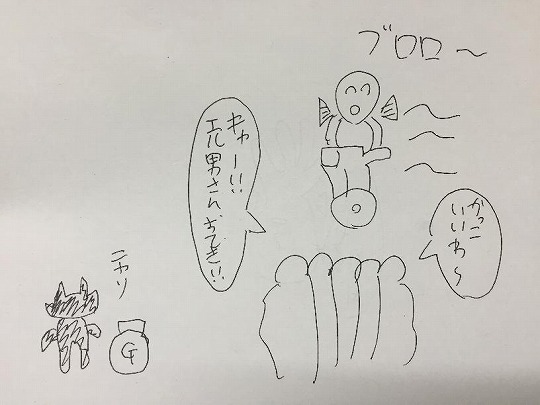 ブロロ～
キャー!!
エル男さんおてき!!
かっこ
いいわ～
ニヤリ
G